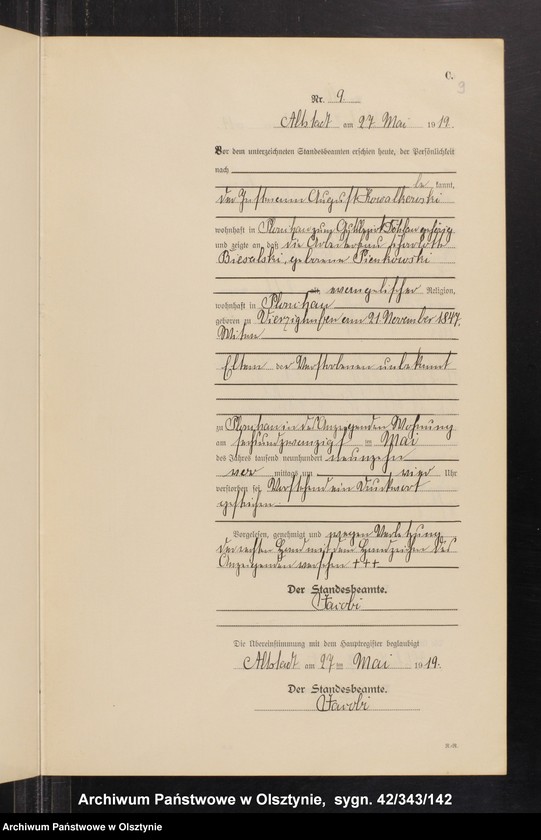 C.
9
Nr. 9.
Altstadt am 27 Mai 1919.
Vor dem unterzeichneten Standesbeamten erschien heute, der Persönlichkeit
nach
be kannt,
der Instmann August Kowalkowski
wohnhaft in Plonchau zum Gutsbezirk gehörig
und zeigte an, daß die Arbeiterfrau Charlotte
Biesalski, geborene Pienkowski
alt, evangelischer Religion,
wohnhaft in Plonchau
geboren zu Vierzighufen am 21 November 1847,
Witwe
Eltern der Verstorbenen unbekannt
zu Plonchau in des Anzeigenden Wohnung
am sechsundzwanzigst en Mai
des Jahres tausend neunhundert neunzehn
vor mittags um vier Uhr
verstorben sei. Vorstehend ein Druckwort
gestrichen.
Vorgelesen, genehmigt und wegen Verletzung
der rechten Hand mit dem Handzeichen des
Anzeigenden versehen +++
Der Standesbeamte.
Jacobi
Die Übereinstimmung mit dem Hauptregister beglaubigt
Altstadt am 27 ten Mai 1919.
Der Standesbeamte.
Jacobi
Archiwum Państwowe w Olsztynie, sygn. 42/343/142
Archiwum Państwowe w Olsztynie